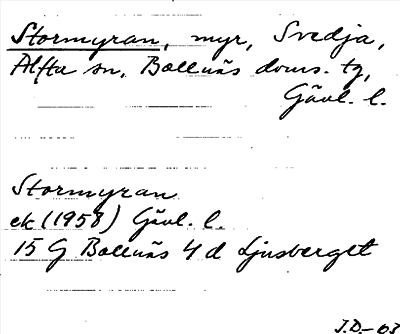 Stormyran, myr, Svedja,
Alfta sn. Bollnäs doms. tg,
Gävl. l.
Stormyran
ek (1958) Gävl. l.
15 G Bollnäs 4 d Ljusberget
J.D.-63